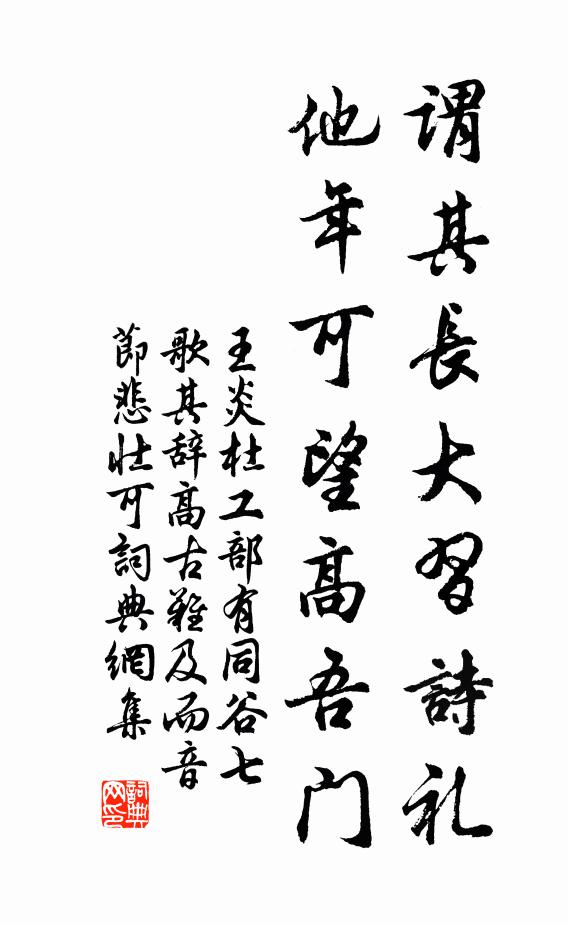 謂其長大習詩礼
他年可望高吾门
王炎杜工部有同谷七
歌其辞高古難及而音
節悲壮可詞典網集
詞典
网印